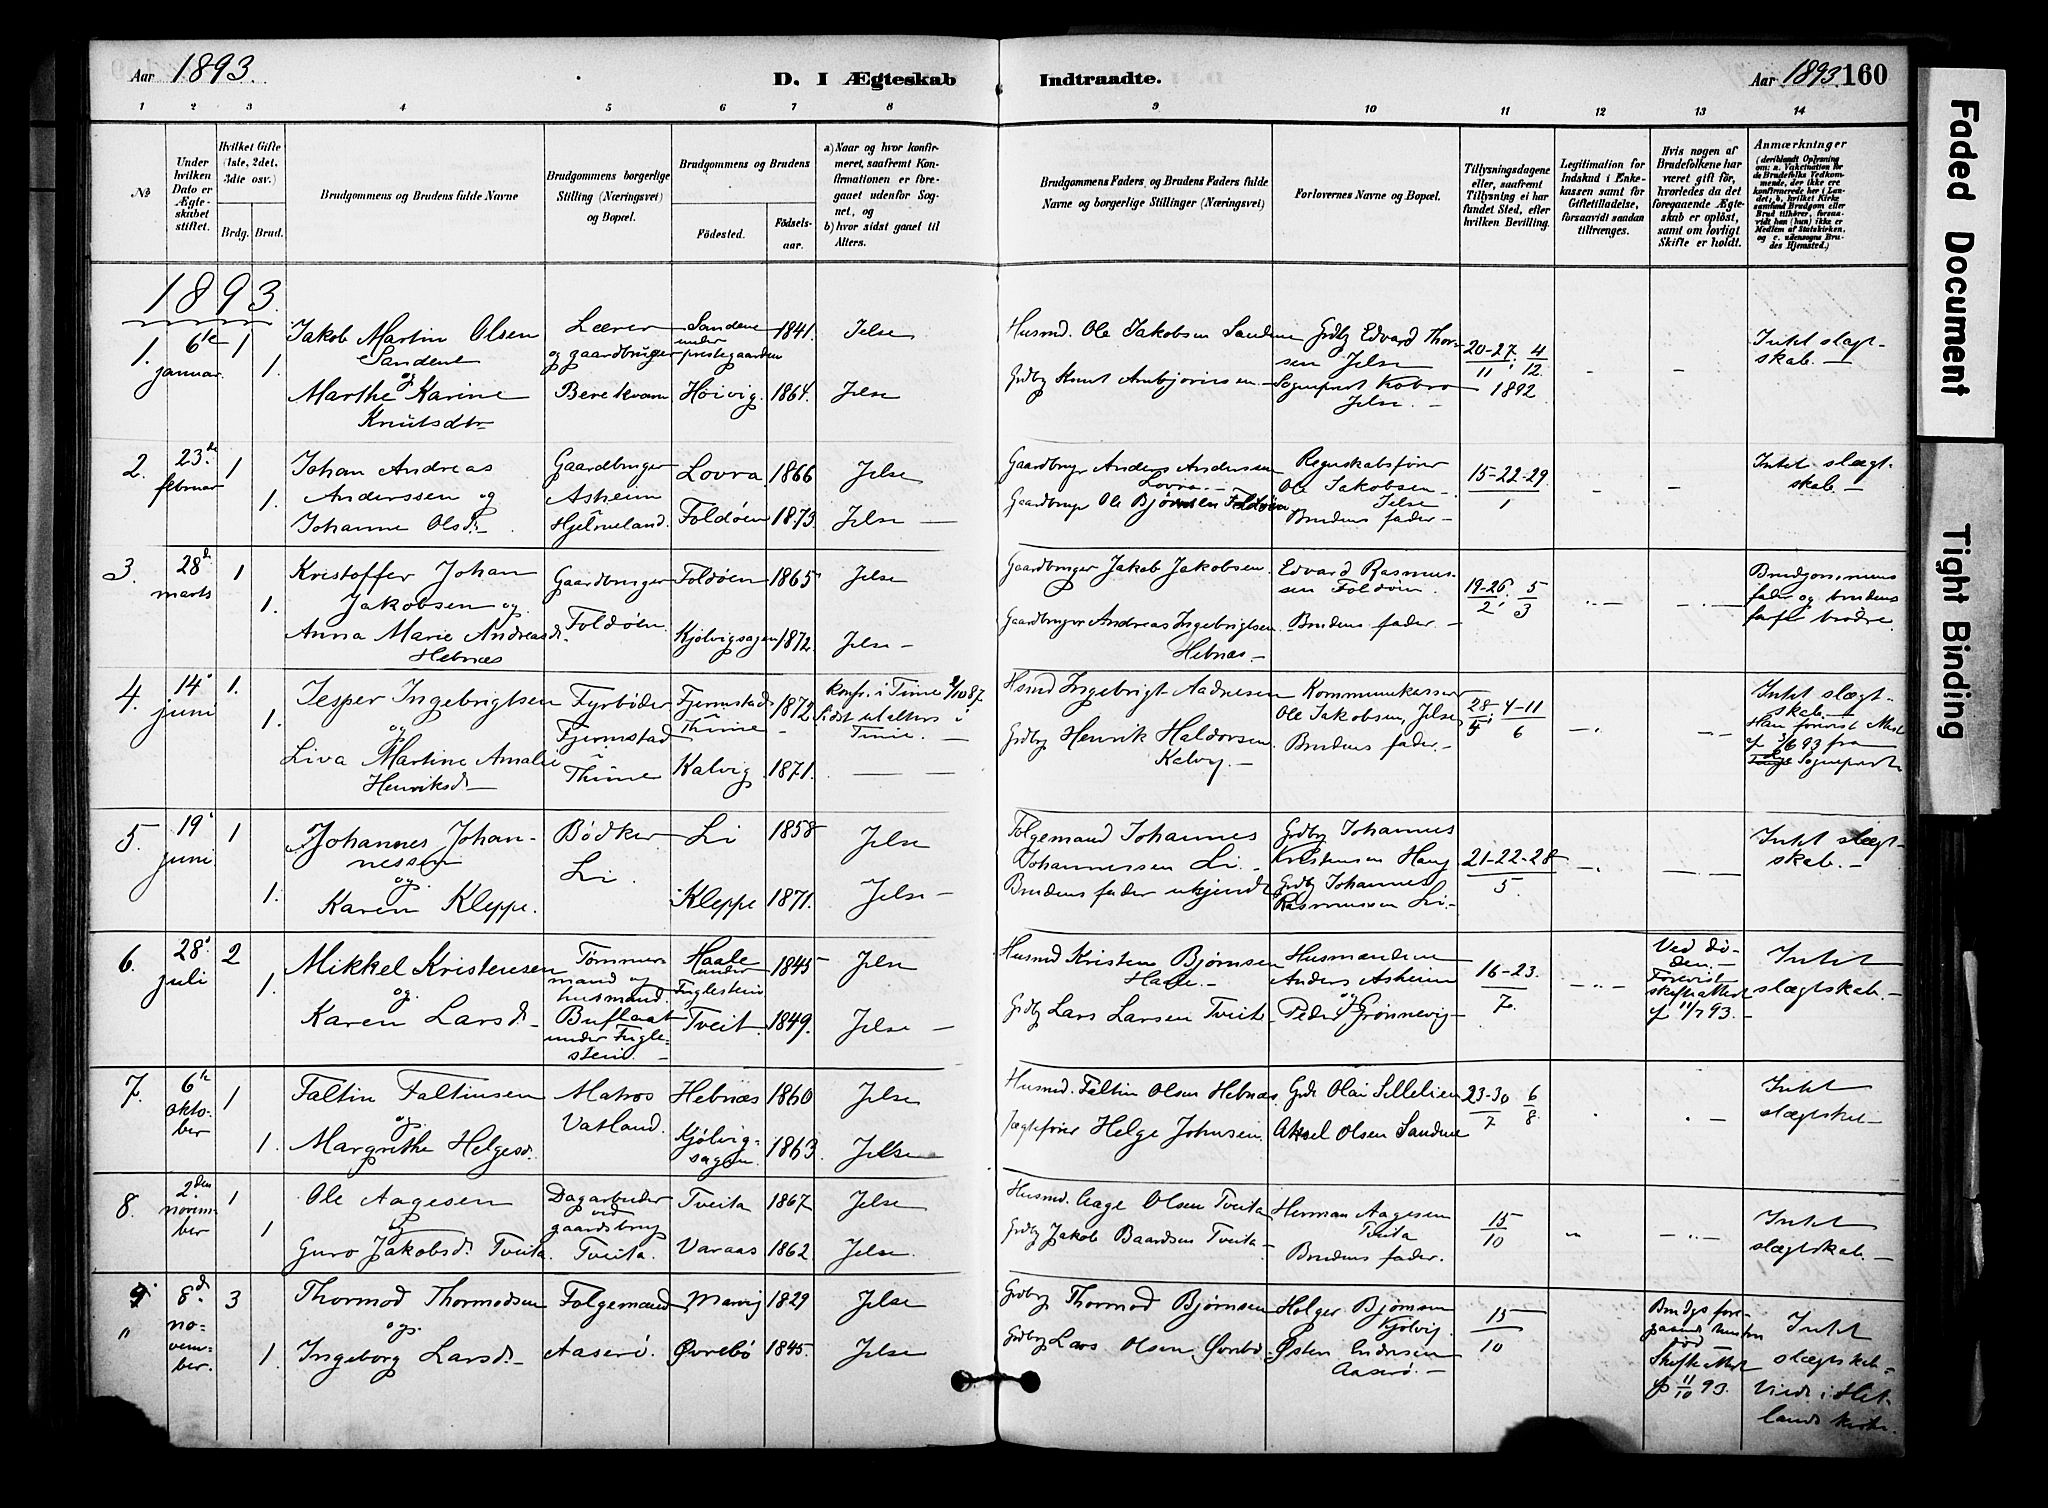 Aar 1893.
D. I Ægteskab
Indtraadte.
Aar 1893 160
1 2 3 4 5 6 7 8 9 10 11 12 13 14
No
Under hvilken Dato er Ægte-skabet stiftet.
Hvilket Gifte (1ste, 2det. 3die osv.)
Brdg. Brud.
Brudgommens og Brudens fulde Navne
Brudgommens borgerlige Stilling (Næringsvei) og Bopæl.
Brudgommens og Brudens
Födested.
Födsels-aar.
a) Naar og hvor konfir-meret, saafremt Kon-firmationen er fore-gaaet udenfor Sog-net, og
b) hvor sidst gaaet til Alters.
Brudgommens Faders og Brudens Faders fulde Navne og borgerlige Stillinger (Næringsvei)
Forlovernes Navne og Bopæl.
Tillysningsdagene eller, saafremt Tillysning ei har fundet Sted, efter hvilken Bevilling.
Legitimation for Indskud i Enke-kassen samt for Giftetilladelse, forsaavidt saadan tiltrænges.
Hvis nogen af Brudefolkene har været gift för, hvorledes da det foregaaende Ægte-skab er oplöst, samt om lovligt Skifte er holdt.
Anmærkninger
(deriblandt Oplysning om: a. Vakcination for Brudefolks Vedkom-mende, der ikke ere konfirmerede her i Lan-det; b. hvilket Kirke-samfund Brudgom eller Brud tilhörer, forsaa-vidt han (hun) ikke er Medlem af Statskirken, og c. udensogns Bru-des Hjemsted.)
1893.
1. 6te januar. 1 1.
Jakob Martin Olsen
Sandene
og
Marthe Karine
Knutsdtr
Lærer
og gaardbruger
Berekvam
Sandene
under
prestegaarden
Høivig.
1841.
1864.
Jelse
Jelse
Husmd. Ole Jakobsen Sandene
Grdbr Knut Arnbjørnsen
Grdbr Edvard Thor-
sen Jelse
Sogneprest Kobro
Jelse.
20-27. 4
11 12.
1892
Intet slægt-
skab.
2. 23de februar 1 1.
Johan Andreas
Anderssen og
Johanne Olsd.
Gaardbruger
Asheim
Hjelmeland.
Lovra
Foldøen
1866
1873
Jelse
Jelse
Gaardbruger Anders Andersen
Lovra.
Gaardbruger Ole Bjørnsen Foldøen
Regnskabsfører
Ole Jakobsen
Jelse
Brudens fader
15-22-29
1
Intet slægt-
skab.
3. 28d marts 1 1.
Kristoffer Johan
Jakobsen og
Anna Marie Andreasd.
Hebnæs
Gaardbruger
Foldøen
Foldøen
Kjølvigsagen
1865
1872.
Jelse
Jelse
Gaardbruger Jakob Jakobsen.
Gaardbruger Andreas Ingebrigtsen
Hebnæs.
Edvard Rasmus-
sen Foldøen.
Brudens fader.
19-26. 5
2 3
Brudgommens
fader og brudens
farfar brødre.
4. 14 juni 1. 1.
Jesper Ingebrigtsen
og
Liva Martine Amalie
Henriksd.
Fyrbøder
Fjermstad
i
Thime
Fjermstad
Thime
Kalvig
1872
1871.
konf. i Time 2/10 87.
Sidst til alters i
Time.
Hsmd Ingebrigt Aadnesen
Grdbr Henrik Haldorsen
Kalvig.
Kommunekasserer
Ole Jakobsen, Jelse
Brudens fader.
28 4-11
5 6
Intet slægt-
skab.
5. 19 juni 1 1.
Johannes Johan-
nessen
og.
Karen Kleppe.
Bødker
Li.
Li
Kleppe
1858
1871.
Jelse
Jelse
Folgemand Johannes
Johannessen Li.
Brudens fader ukjendt
Grdbr Johannes
Kristensen Haug
Grdbr Johannes
Rasmussen Li.
21-22-28
5.
Intet slægt-
skab.
6. 28 juli 2 1.
Mikkel Kristensen
og.
Karen Larsd.
Tømmer-
mand og
husmand.
Buflaat
under Fugle-
stein.
Haale
under
Fuglestein
Tveit
1845
1849.
Jelse
Jelse
Husmd Kristen Bjørnsen
Grdbr Lars Larsen Tveit
Husmændene
Anders Asheim
og
Peder Grønnevig
16-23.
7.
Ved dø-
den.
Forevist
skifteattest
af 11/7 93.
Intet
slægtskab.
7. 6te oktober 1 1.
Faltin Faltinsen
og.
Margrethe Helgesd.
Matros
Vatland.
Hebnæs
Kjølvig-
sagen.
1860
1863
Jelse
Jelse
Husmd. Faltin Olsen Hebnæs.
Jægtefører Helge Johnsen.
Grdbr Olai Sellelien
Aksel Olsen Sandene
23-30 6
7 8
Intet
8. 2den november 1 1
Ole Aagesen
og
Guro Jakobsd. Tveita.
Dagarbeider
ved
gaardsbrug
Tveita.
Tveita
Varaas
1867
1862.
Jelse
Jelse.
Husmd. Aage Olsen Tveita
Grdbr Jakob Baardsen Tveita
Herman Aagesen
Tveita
Brudens fader.
15
10
Intet
slægtskab.
9. 8d. november. 3 1.
Thormod Thormodsen
og.
Ingeborg Larsd.
Folgemand
Aaserø.
Marvig
Øvrebø
1829
1845.
Jelse
Jelse
Grdbr Thormod Bjørnsen
Grdbr Lars Olsen Øvrebø
Holger Bjørnsen
Kjølvig.
Østen Endresen
Aaserø.
15
10
Brudgs fore-
gaaende hustru
død
Skifteattest
af 11/10 93.
Intet
slægtskab
Viede i Het-
lands kirke.
Faded Document
Tight Binding